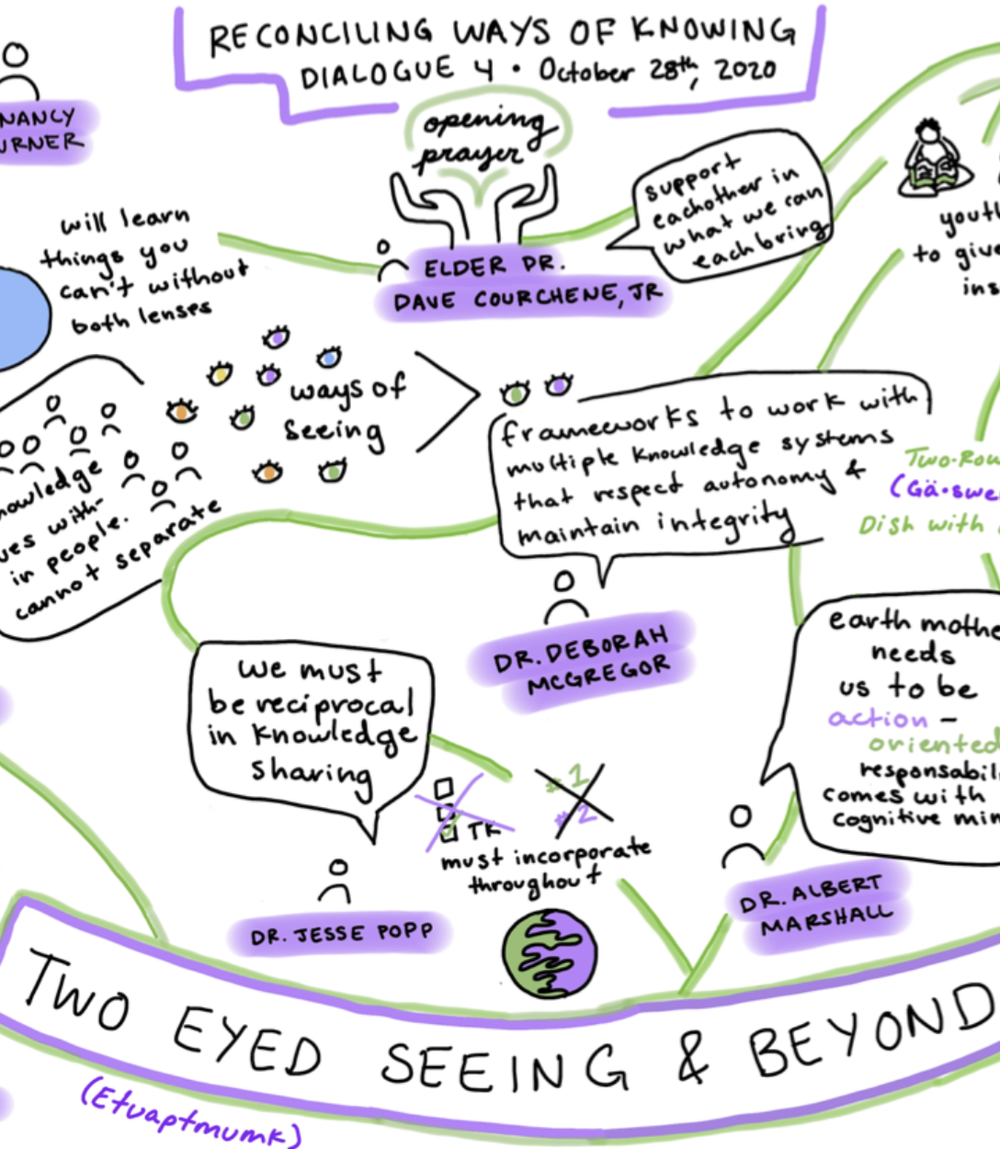 RECONCILING WAYS OF KNOWING
DIALOGUE 4 • October 28th, 2020
NANCY
URNER
opening
prayer
ELDER DR.
DAVE COURCHENE, JR
support
eachother in
what we can
each bring
youth
to give
ins
will learn
things you
can't without
both lenses
ways of
seeing
nowledge
ves with-
in people.
cannot separate
frameworks to work with
multiple knowledge systems
that respect autonomy &
maintain integrity
DR. DEBORAH
MCGREGOR
Two-Row
(Gä•swe
Dish with
we must
be reciprocal
in knowledge
sharing
DR. JESSE POPP
TK
#1
#2
must incorporate
throughout
earth mothe
needs
us to be
action -
oriented
responsabil
comes with
cognitive min
DR. ALBERT
MARSHALL
TWO EYED SEEING & BEYOND
(Etuaptmumk)